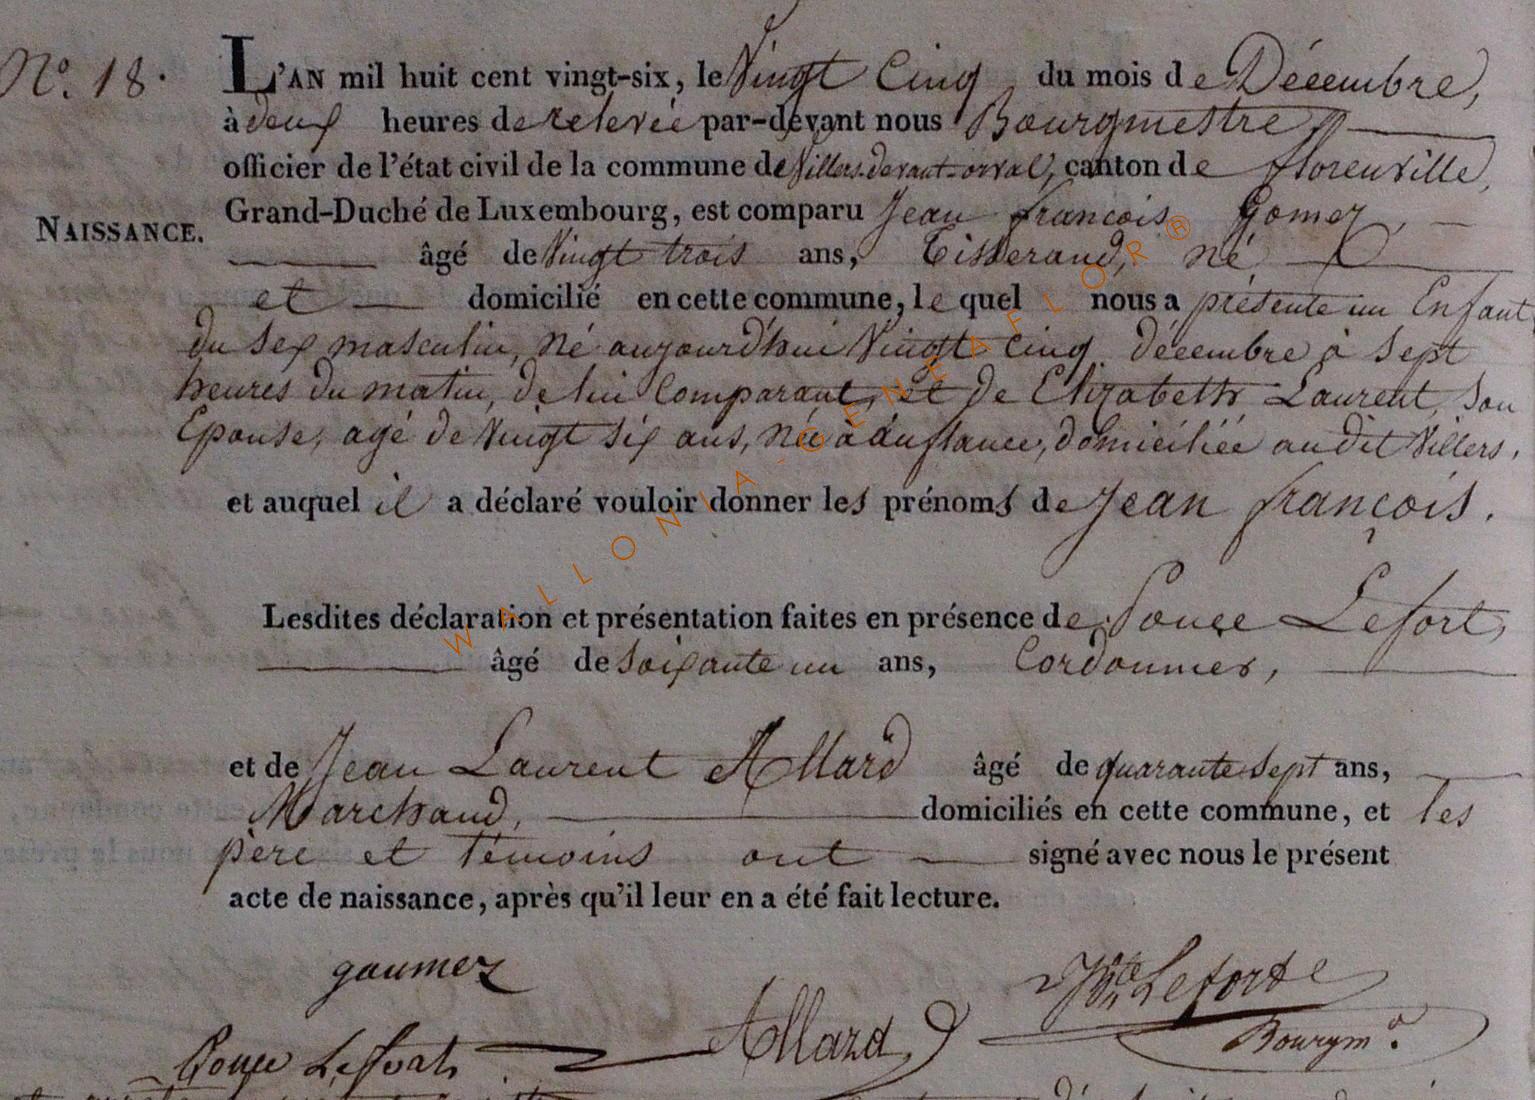 N.º 18. L'AN mil huit cent vingt-six, le Vingt Cinq du mois de Décembre,
à deux heures de relevée par-devant nous Bourgmestre
officier de l'état civil de la commune de Villers-devant-orval, canton de florenville,
Grand-Duché de Luxembourg, est comparu Jean françois Gomez,
NAISSANCE.
âgé de Vingt trois ans, Tisserand, né
et domicilié en cette commune, le quel nous a présente un Enfant
du sex masculin, né aujourd'hui Vingt Cinq décembre à sept
heures du matin, de lui Comparant, et de Elizabeth Laurent, son
Epouse, agé de Vingt six ans, née à, domiciliée au dit Villers.
et auquel il a déclaré vouloir donner les prénoms de Jean françois.
Lesdites déclaration et présentation faites en présence de Ponçe Lefort,
âgé de soixante un ans, Cordonnier,
et de Jean Laurent Allard âgé de quarante sept ans,
Marchand, domiciliés en cette commune, et les
père et témoins ont signé avec nous le présent
acte de naissance, après qu'il leur en a été fait lecture.
goumez
Leforte
Ponce Lefort Allard Bourgm.º
WALLONIA-GENEAFLOR®